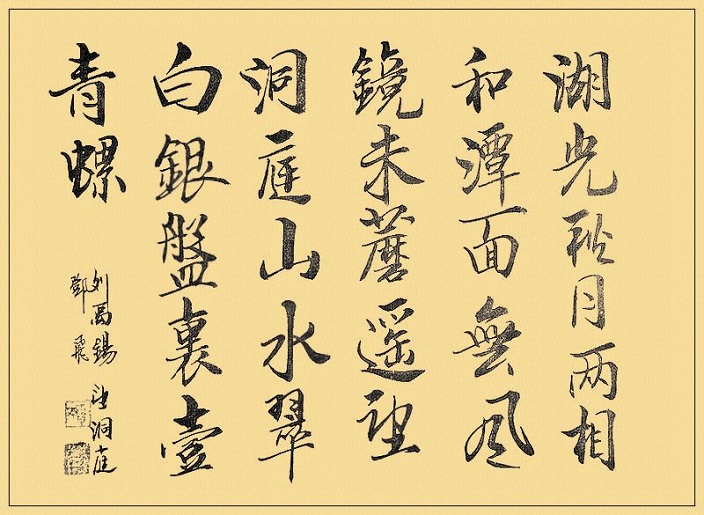 湖光秋月两相
和潭面無風
鏡未蘑遥望
洞庭山水翠
白銀盤裏壹
青螺
刘禹錫望洞庭
鄧飛